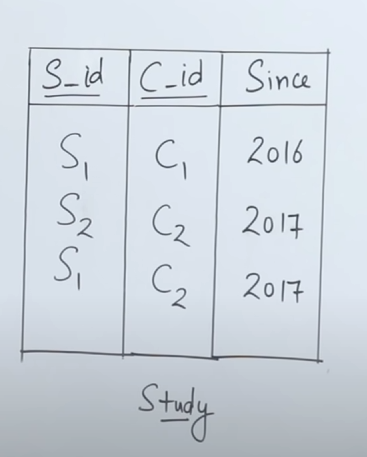 S_id C_id Since
S1 C1 2016
S2 C2 2017
S1 C2 2017
Study